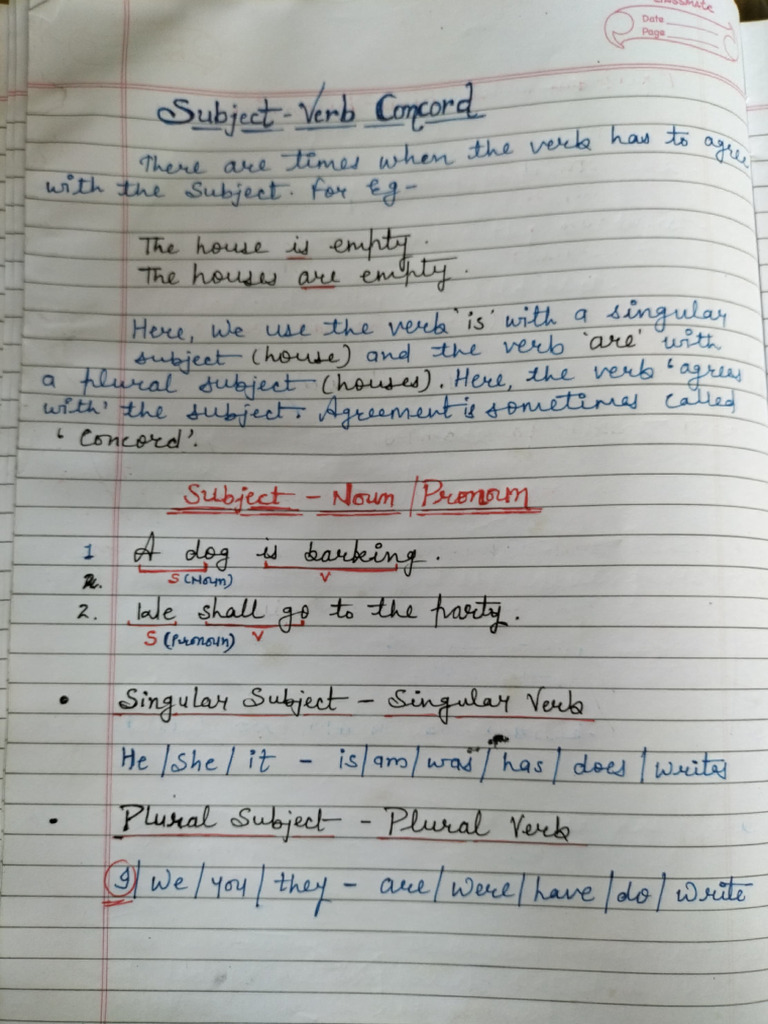 classmate
Date
Page
Subject-Verb Concord
There are times when the verb has to agree
with the Subject. For Eg-
The house is empty.
The houses are empty.
Here, we use the verb 'is' with a singular
subject (house) and the verb 'are' with
a plural subject (houses). Here, the verb 'agrees
with' the subject. Agreement is sometimes called
'Concord'.
Subject - Noun/Pronoun
1 A dog is barking.
S (Noun) V
2.
2. We shall go to the party.
S (Pronoun) V
• Singular Subject - Singular Verb
He/She/it - is/am/was/has/does/writes
• Plural Subject - Plural Verb
I/we/you/they - are/were/have/do/write